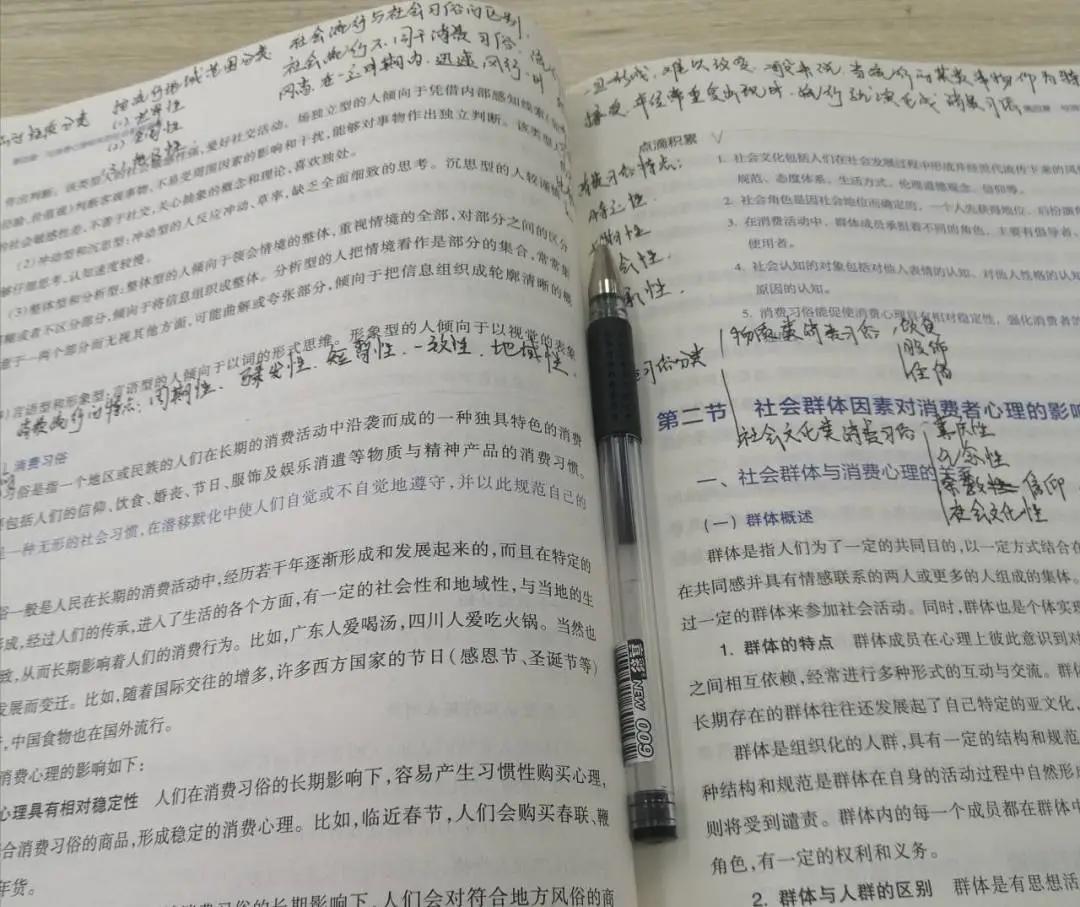 社会流行与社会习俗的区别,
社会流行不同于消费习俗,
同志,在一定时期内,迅速,风行,
按流行地域范围分类
(1)世界性
(2)全国性
作出判断。该类型人的社会敏感性强,爱好社交活动。场独立型的人倾向于凭借内部感知线索(
经验、价值观)判断客观事物,不易受周围因素的影响和干扰,能够对事物作出独立判断。该类型人
的社会敏感性差,不善于社交,关心抽象的概念和理论,喜欢独处。
(2)冲动型和沉思型:冲动型的人反应冲动、草率,缺乏全面细致的思考。沉思型的人较谨慎,
够仔细思考,认知速度较慢。
(3)整体型和分析型:整体型的人倾向于领会情境的整体,重视情境的全部,对部分之间的区分
糊或者不区分部分,倾向于将信息组织成整体。分析型的人把情境看作是部分的集合,常常集
意于一两个部分而无视其他方面,可能曲解或夸张部分,倾向于把信息组织成轮廓清晰的概
言语型和形象型:言语型的人倾向于以词的形式思维。形象型的人倾向于以视觉的表象
消费流行的特点:周期性、骤发性、短暂性、一致性、地域性
消费习俗
习俗是指一个地区或民族的人们在长期的消费活动中沿袭而成的一种独具特色的消费
包括人们的信仰、饮食、婚丧、节日、服饰及娱乐消遣等物质与精神产品的消费习惯。
一种无形的社会习惯,在潜移默化中使人们自觉或不自觉地遵守,并以此规范自己的
俗一般是人民在长期的消费活动中,经历若干年逐渐形成和发展起来的,而且在特定的
形成,经过人们的传承,进入了生活的各个方面,有一定的社会性和地域性,与当地的生
致,从而长期影响着人们的消费行为。比如,广东人爱喝汤,四川人爱吃火锅。当然也
发展而变迁。比如,随着国际交往的增多,许多西方国家的节日(感恩节、圣诞节等)
,中国食物也在国外流行。
消费心理的影响如下:
心理具有相对稳定性 人们在消费习俗的长期影响下,容易产生习惯性购买心理,
合消费习俗的商品,形成稳定的消费心理。比如,临近春节,人们会购买春联、鞭
年货。
消费习俗的长期影响下,人们会对符合地方风俗的商
一旦形成,难以改变,
点滴积累
1. 社会文化包括人们在社会发展过程中形成并经世代流传下来的风俗
规范、态度体系、生活方式、伦理道德观念、信仰等。
2. 社会角色是因社会地位而确定的,一个人先获得地位,后扮演
3. 在消费活动中,群体成员承担着不同的角色,主要有倡导者、
使用者。
4. 社会认知的对象包括对他人表情的认知、对他人性格的认知
原因的认知。
5. 消费习俗能促使消费心理具有相对稳定性,强化消费者的
消费习俗特点:
特定性
长期性
社会性
习俗分类
物质类消费习俗 饮食
服饰
住宿
第二节 社会群体因素对消费者心理的影响
社会文化类消费习俗
喜庆性
纪念性
宗教性 信仰
社会文化性
一、社会群体与消费心理的关系
(一)群体概述
群体是指人们为了一定的共同目的,以一定方式结合在
在共同感并具有情感联系的两人或更多的人组成的集体。
过一定的群体来参加社会活动。同时,群体也是个体实现
1. 群体的特点 群体成员在心理上彼此意识到对
之间相互依赖,经常进行多种形式的互动与交流。群体
长期存在的群体往往还发展起了自己特定的亚文化,
群体是组织化的人群,具有一定的结构和规范
种结构和规范是群体在自身的活动过程中自然形成
则将受到谴责。群体内的每一个成员都在群体中
角色,有一定的权利和义务。
2. 群体与人群的区别 群体是有思想活
真彩 NEW 009